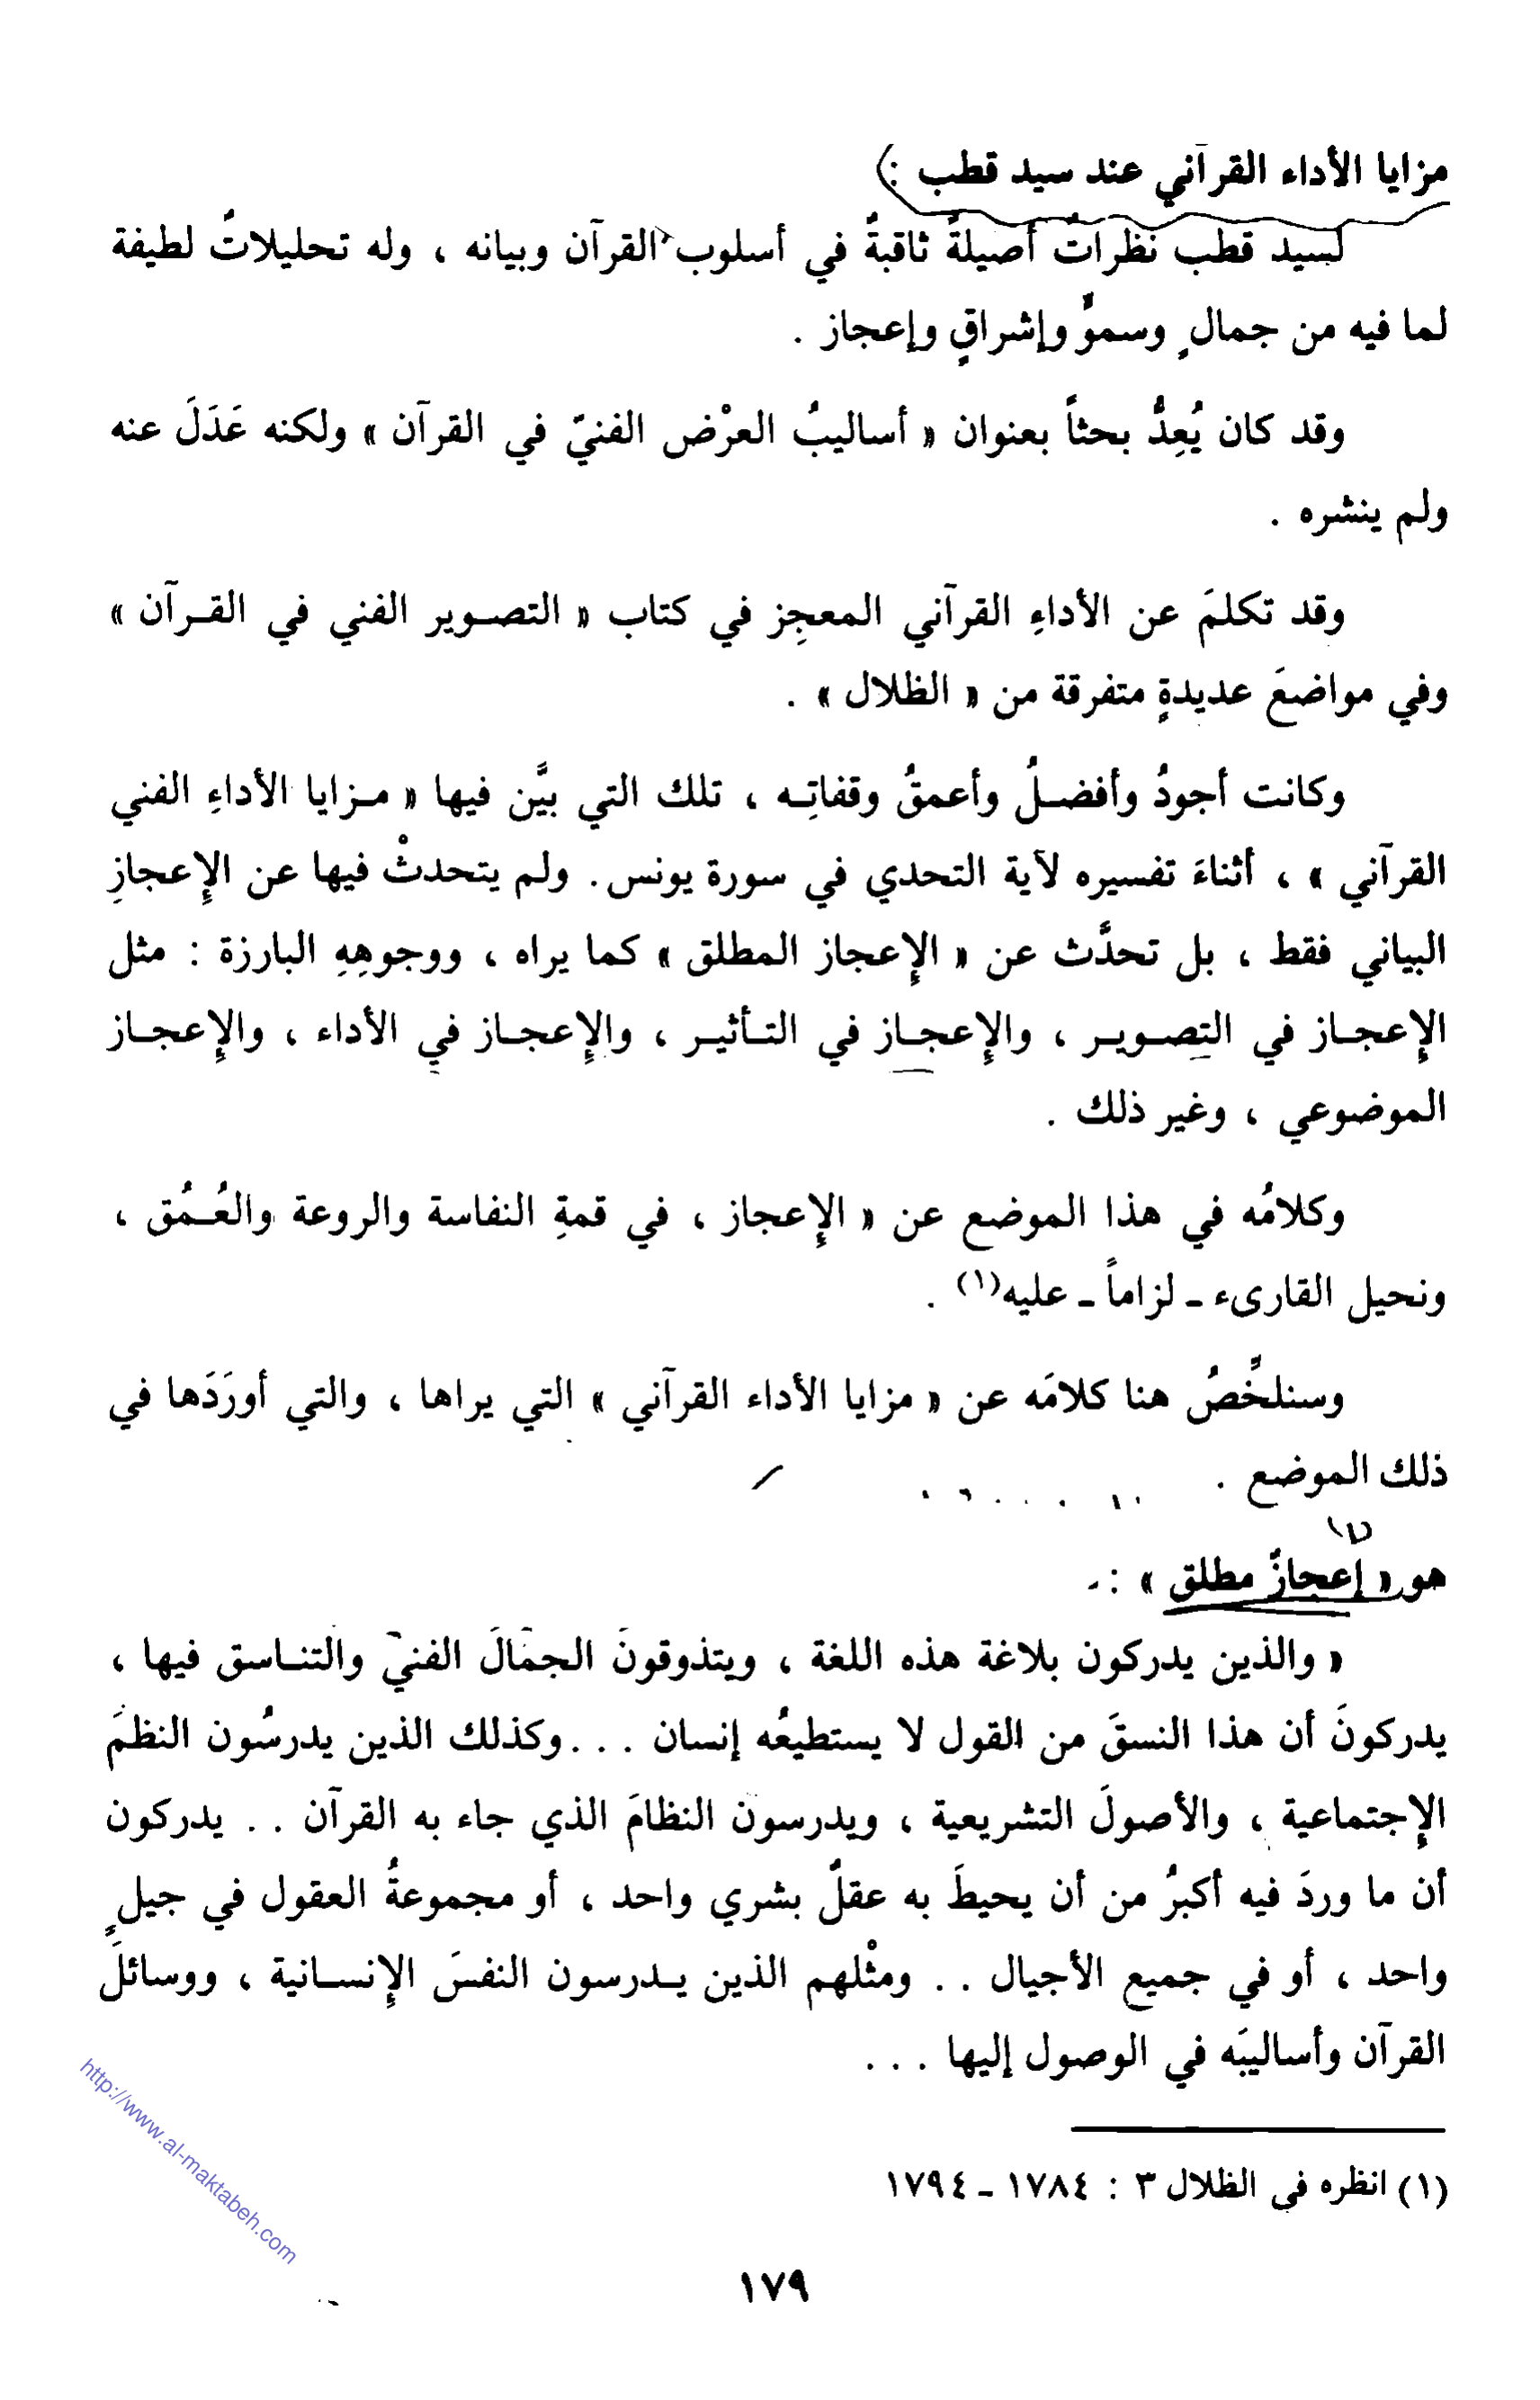 مزايا الأداء القرآني عند سيد قطب :
لسيد قطب نظراتٌ أصيلةٌ ثاقبةٌ في أسلوب القرآن وبيانه ، وله تحليلاتٌ لطيفة
لما فيه من جمالٍ وسموٍّ وإشراقٍ وإعجاز .
وقد كان يُعِدُّ بحثاً بعنوان « أساليبُ العرْض الفنيّ في القرآن » ولكنه عَدَلَ عنه
ولم ينشره .
وقد تكلمَ عن الأداءِ القرآني المعجِز في كتاب « التصوير الفني في القرآن »
وفي مواضعَ عديدةٍ متفرقة من « الظلال » .
وكانت أجودُ وأفضلُ وأعمقُ وقفاتِه ، تلك التي بيَّن فيها « مزايا الأداءِ الفني
القرآني » ، أثناءَ تفسيره لآية التحدي في سورة يونس . ولم يتحدثْ فيها عن الإعجازِ
البياني فقط ، بل تحدَّث عن « الإعجاز المطلق » كما يراه ، ووجوهِهِ البارزة : مثل
الإعجاز في التصوير ، والإعجاز في التأثير ، والإعجاز في الأداء ، والإعجاز
الموضوعي ، وغير ذلك .
وكلامُه في هذا الموضع عن « الإعجاز ، في قمةِ النفاسة والروعة والعُمُق ،
ونحيل القارىء ـ لزاماً ـ عليه(١) .
وسنلخِّصُ هنا كلامَه عن « مزايا الأداء القرآني » التي يراها ، والتي أورَدَها في
ذلك الموضع .
هو « إعجازٌ مطلق » :ـ
« والذين يدركون بلاغة هذه اللغة ، ويتذوقونَ الجمالَ الفنيّ والتناسق فيها ،
يدركونَ أن هذا النسقَ من القول لا يستطيعُه إنسان . . . وكذلك الذين يدرسُون النظمَ
الإجتماعية ، والأصولَ التشريعية ، ويدرسون النظامَ الذي جاء به القرآن . . يدركون
أن ما وردَ فيه أكبرُ من أن يحيطَ به عقلٌ بشري واحد ، أو مجموعةُ العقول في جيلٍ
واحد ، أو في جميع الأجيال . . ومثْلهم الذين يدرسون النفسَ الإنسانية ، ووسائلَ
القرآن وأساليبَه في الوصول إليها . . .
(١) انظره في الظلال ٣ : ١٧٨٤ ـ ١٧٩٤
١٧٩
http://www.al-maktabeh.com